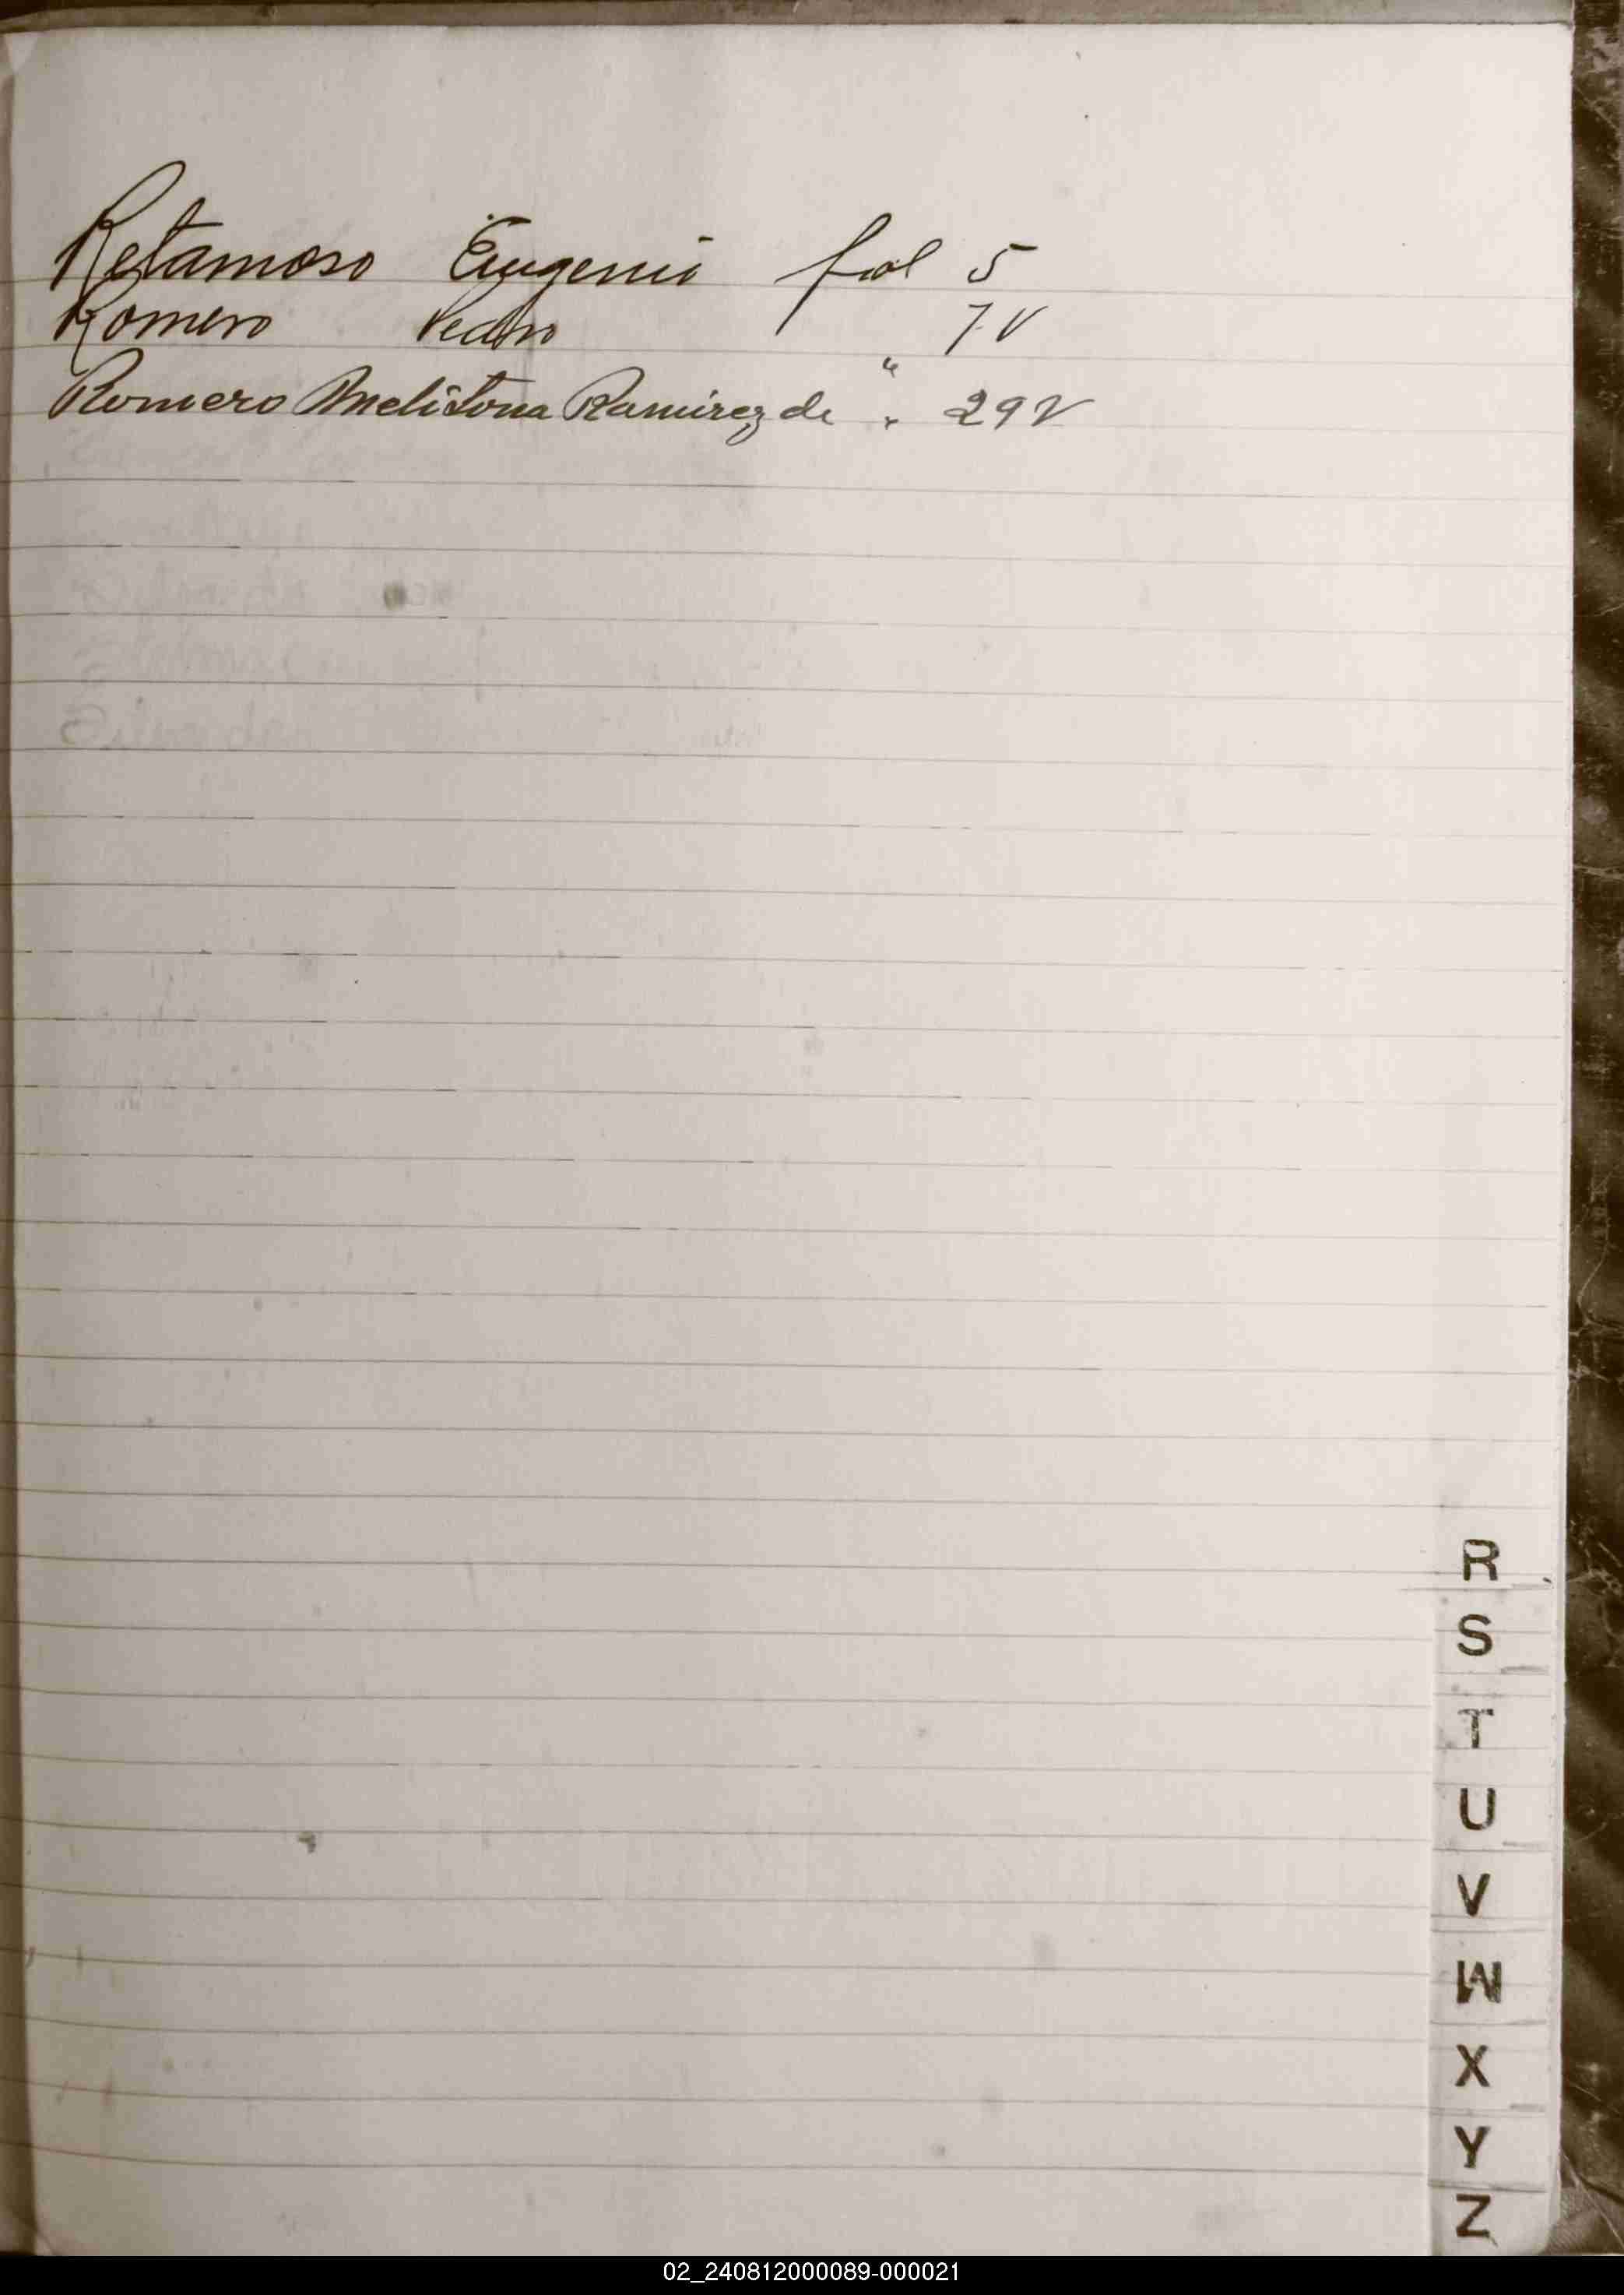 Retamoso Eugenio fol 5
Romero Pedro " 7 V
Romero Melitona Ramirez de " 29 V
R
S
T
U
V
W
X
Y
Z
02_240812000089-000021